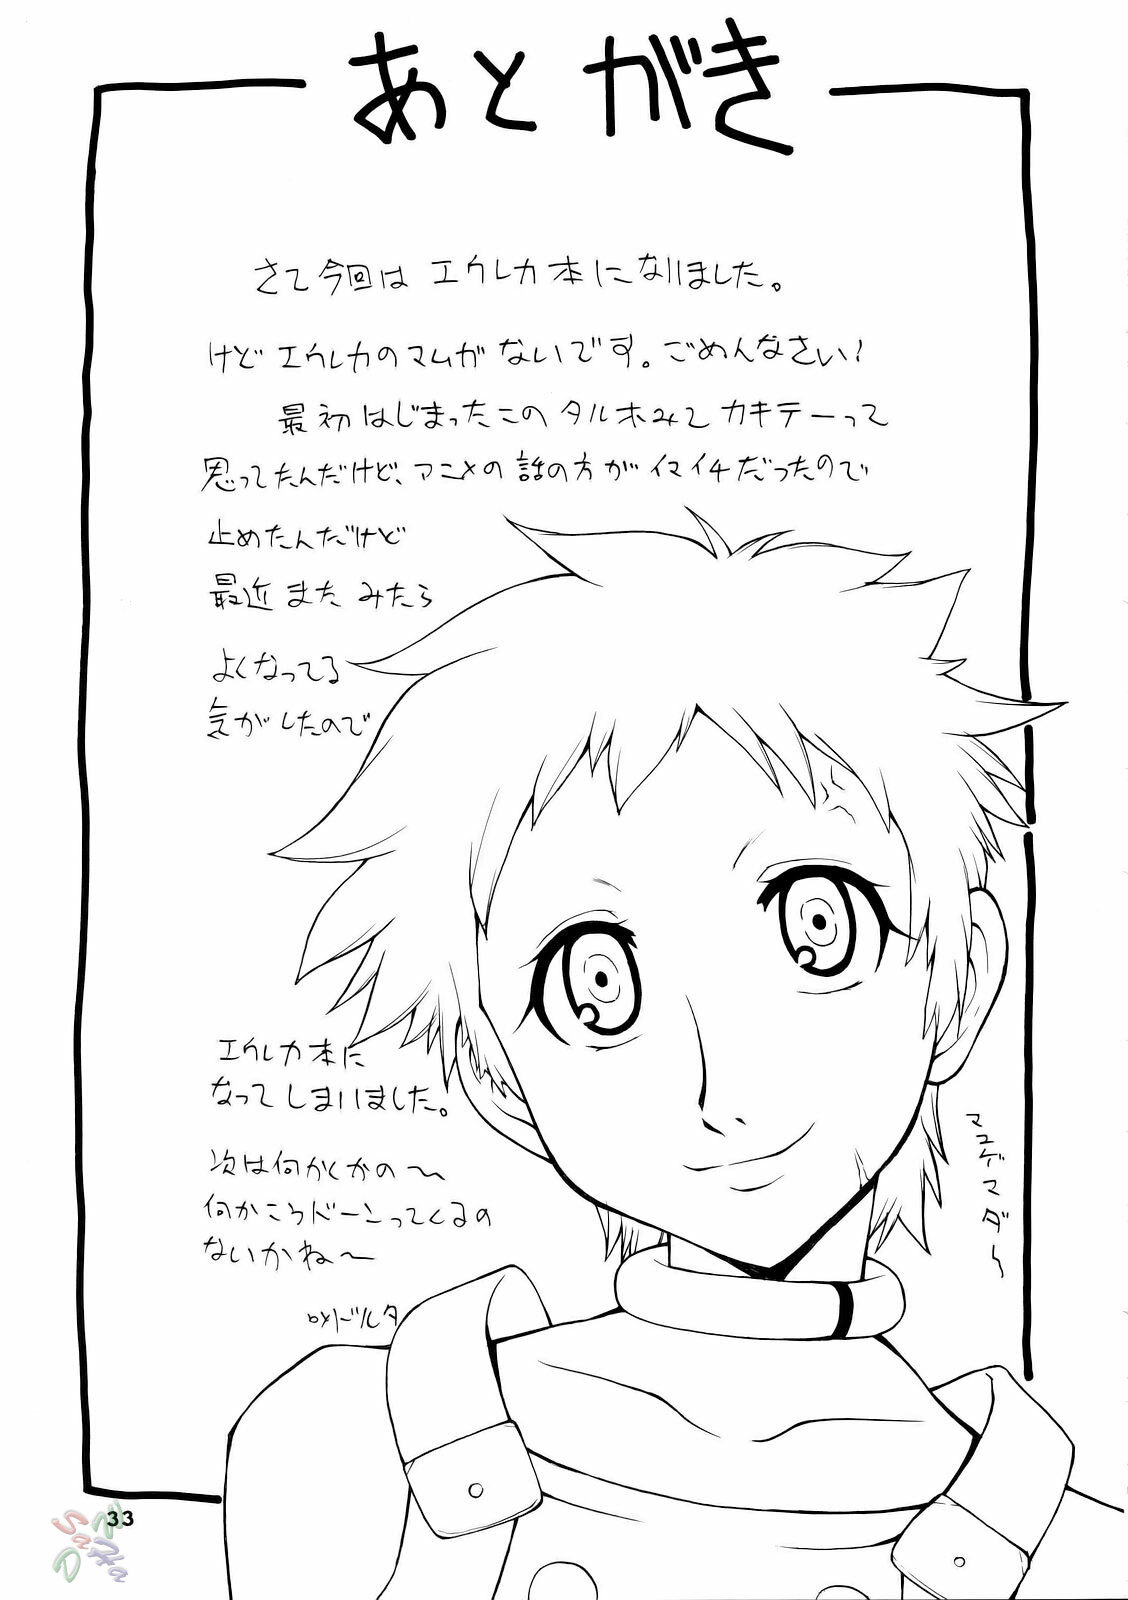 あとがき
さて今回は エウレカ本になりました。
けど エウレカのマムガ ないです。ごめんなさい!
最初 はじまったこの タルホみて カキテーって
思ってたんだけど、アニメの 話の方が イマイチだったので
止めたんだけど
最近 また みたら
よくなってる
気がしたので
エウレカ本に
なってしまいました。
次は何かくかの〜
何かころドーンってくるの
ないかね〜
マユゲマダ〜
33